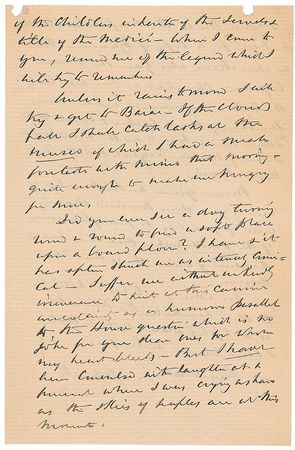 of the Childless inherits of the
title of the Medici – When I come to
you, remind me of the legend which I
try to remember
Unless it rains tomorrow I will
try & get to Baiae – If the clouds
hold I shall catch looks at the
Museo of which I had a small
foretaste with this morning –
quite enough to make me hungry
for more.
Did you ever see a dog turning
round & round to find a soft place
upon a board floor? I have & it
has often struck me as intensely comi-
cal – Suffer me without
irreverence to hint at this canine
as a humorous parallel
to the House question which is no
joke for you dear ones for whom
my heart bleeds – But I have
been convulsed with laughter at a
funeral when I was crying as hard
as the skies of Naples are at this
moment.